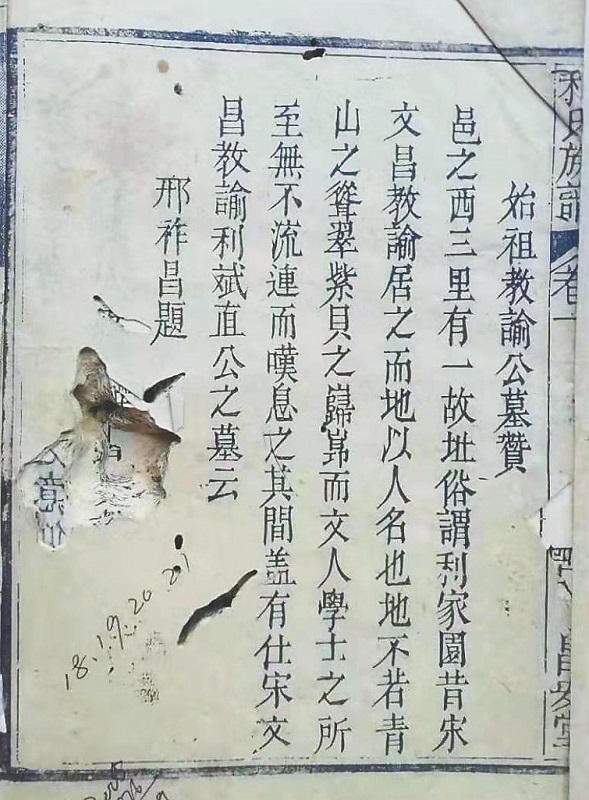 利氏族譜
卷一
昌安堂
始祖教諭公墓贊
邑之西三里有一故址俗謂利家園昔宋
文昌教諭居之而地以人名也地不若青
山之聳翠紫貝之巋岿而文人學士之所
至無不流連而嘆息之其間盖有仕宋文
昌教諭利斌直公之墓云
邢祚昌題
18.19.20 21